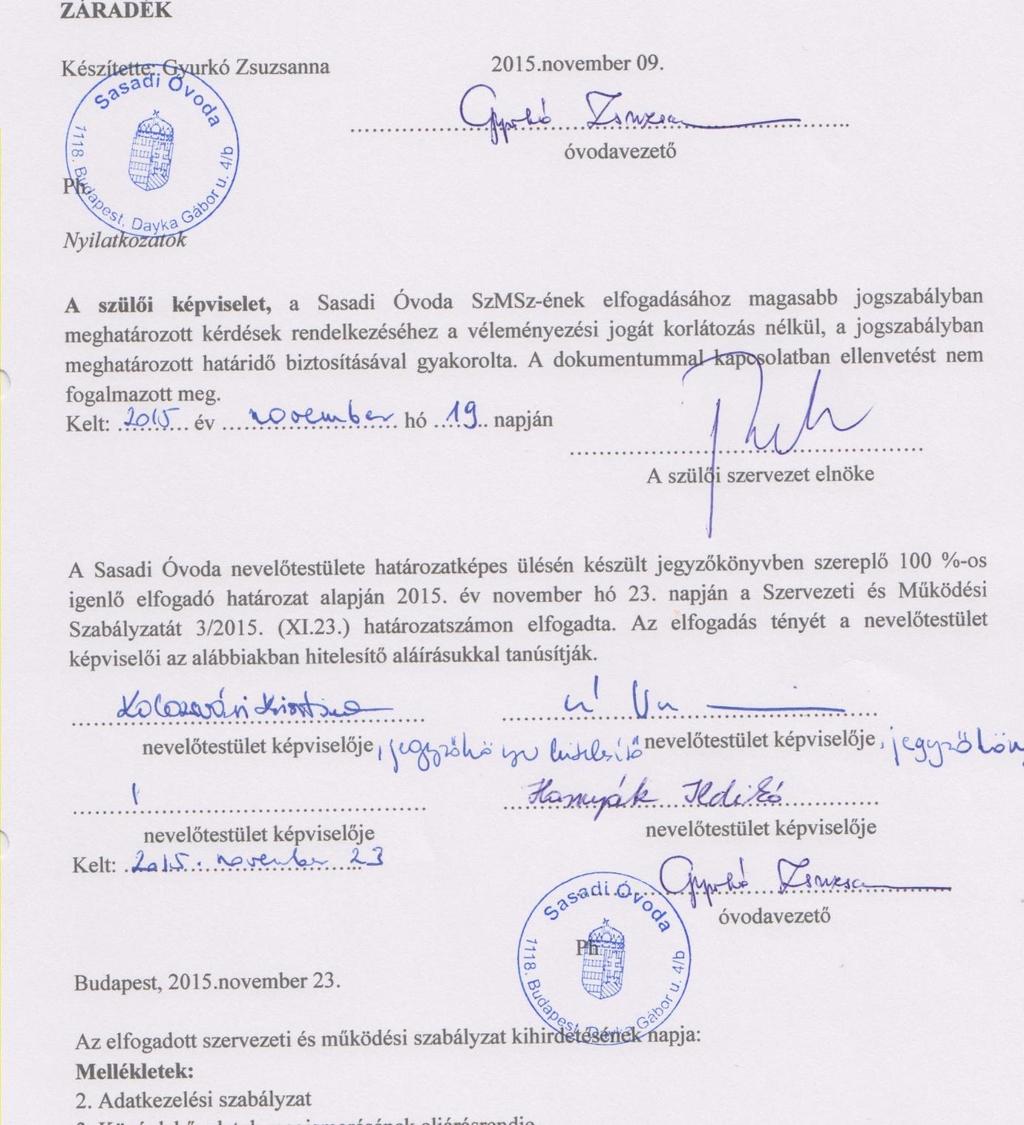 ZÁRADÉK
Készítette: Gyurkó Zsuzsanna 2015.november 09.
Sasadi Óvoda
1118. Budapest, Dayka Gábor u. 4/b
Gyurkó Zsuzsa
óvodavezető
Ph.
Nyilatkozatok
A szülői képviselet, a Sasadi Óvoda SzMSz-ének elfogadásához magasabb jogszabályban
meghatározott kérdések rendelkezéséhez a véleményezési jogát korlátozás nélkül, a jogszabályban
meghatározott határidő biztosításával gyakorolta. A dokumentummal kapcsolatban ellenvetést nem
fogalmazott meg.
Kelt: 2015 év november hó 19. napján
A szülői szervezet elnöke
A Sasadi Óvoda nevelőtestülete határozatképes ülésén készült jegyzőkönyvben szereplő 100 %-os
igenlő elfogadó határozat alapján 2015. év november hó 23. napján a Szervezeti és Működési
Szabályzatát 3/2015. (XI.23.) határozatszámon elfogadta. Az elfogadás tényét a nevelőtestület
képviselői az alábbiakban hitelesítő aláírásukkal tanúsítják.
Kolozsvári Krisztina
nevelőtestület képviselője, jegyzőkönyv hitelesítő nevelőtestület képviselője, jegyzőköny
Hanyák Ildikó
nevelőtestület képviselője nevelőtestület képviselője
Kelt: 2015. november 23
Gyurkó Zsuzsa
óvodavezető
Sasadi Óvoda
1118. Budapest, Dayka Gábor u. 4/b
Ph.
Budapest, 2015.november 23.
Az elfogadott szervezeti és működési szabályzat kihirdetésének napja:
Mellékletek:
2. Adatkezelési szabályzat